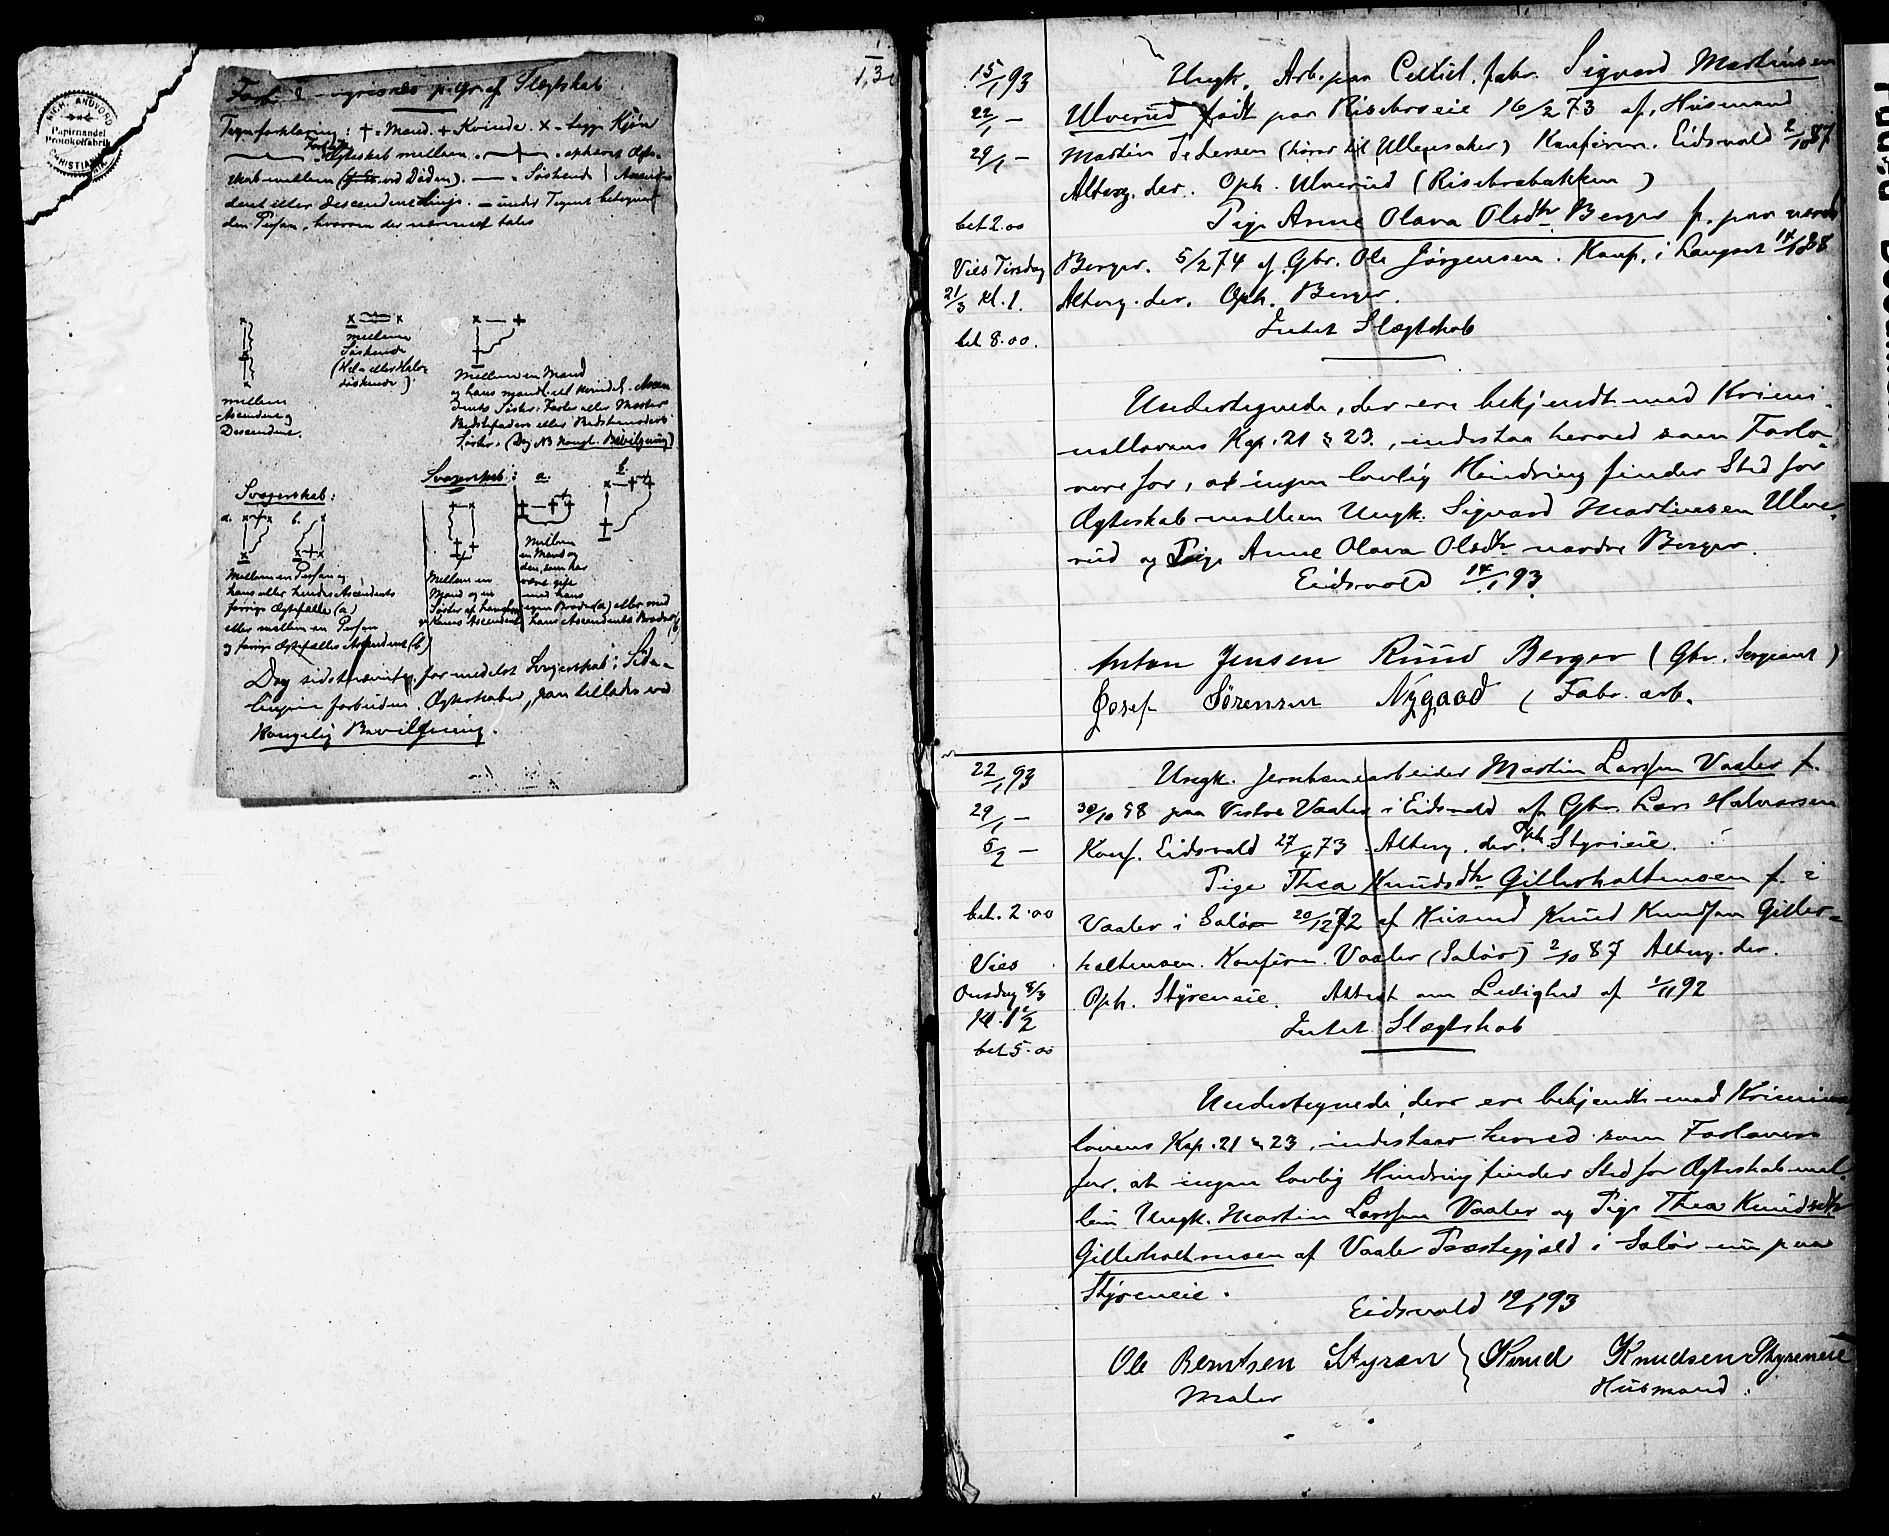 RICH. ANDVORD
Papirhandel
Protokolfabrik
CHRISTIANIA
p. Gr. af Slægtskab
Tegnforklaring: + = Mand. + Kvinde. x = begge Kjøn
Ægteskab mellem ophævet Ægte-
skab mellem ved Døden). — = Søskende | Ascen-
dent eller Descendent Linje. — under Tegnet betegner
den Person, hvorom der nærmest tales
mellem
Ascendent og
Descendent.
mellem
Søskende
(Hel- eller Halv-
søskende)
Mellem en Mand
og hans
dents Søster: Faster eller Moster
Bedstefaders eller Bedstemoders
Søster. (Dog NB kongl. Bevilgning)
Svogerskab:
a. b.
Mellem en Person og
hans eller hendes Ascendents
forrige Ægtefælle (a)
eller mellem en Person
og forrige Ægtefælles Ascendent (b)
Svogerskab: a. b.
Mellem en
Mand og en
Søster af
Mellem
en Mand og
den, som har
været gift
med hans
egen Broder (a) eller med
hans Ascendents Broder (b)
Dog sidstnævnte, formedelst Svogerskab i Side-
linjen forbudne Ægteskaber, kan tillades ved
Kongelig Bevilgning.
15/1 93
22/1 —
29/1 —
bet 2.00
Vies Tirsdag
21/3 Kl. 1.
bet 8.00.
Ungk. Arb. paa Cellul. fabr. Sigvard Martinsen
Ulverud født paa Risebroeie 16/2 73 af Husmand
Martin Pedersen (hører til Ullensaker) Konfirm. Eidsvold 2/10 87
Altery. der. Oph. Ulverud (Risebrobakken)
Pige Anne Olava Olsdtr Berger f. paa nordre
Berger. 5/2 74 af Gbr. Ole Jørgensen. Konf. i Langset 14/10 88
Altery. der. Oph. Berger.
Intet Slægtskab
Undertegnede, der ere bekjendt med Krimi-
nallovens Kap. 21 § 23., indestaa herved som Forlo-
vere for, at ingen lovlig Hindring finder Sted for
Ægteskab mellem Ungk. Sigvard Martinsen Ulve-
rud og Pige Anne Olava Olsdtr nordre Berger.
Eidsvold 14/1 93.
Anton Jensen Ruud Berger (Gbr. Sergeant)
Josef Sørensen Nygaad (Fabr. arb.
22/1 93
29/1 —
5/2 —
bet. 2.00
Vies
Onsdag 8/3
Kl. 1 1/2
bet 5.00
Ungk. Jernbanearbeider Martin Larssen Vaaler f.
30/10 58 paa Vestre Vaaler i Eidsvold af Gbr. Lars Halvorsen
Konf. Eidsvold 27/4 73 Altery. der. Oph Styrieie.
Pige Thea Knudsdtr Gitterholtmoen f. i
Vaaler i Solør 20/12 72 af Husmd Knud Knudsen Gitter-
holtmoen. Konfirm. Vaaler (Solør) 2/10 87 Altery. der.
Oph. Styreneie. Attest om Ledighed af 1/11 92
Intet Slægtskab
Undertegnede, der ere bekjendt med Kriminal
lovens Kap. 21 § 23, indestaar herved som Forlovere
for, at ingen lovlig Hindring finder Sted for Ægteskab mel-
lem Ungk. Martin Larssen Vaaler og Pige Thea Knudsdtr
Gitterholtmoen af Vaaler Præstegjæld i Solør nu paa
Styreneie.
Eidsvold 19/1 93
Ole Berntsen Styran } Knud Knudsen Styreneie
Maler
Husmand.